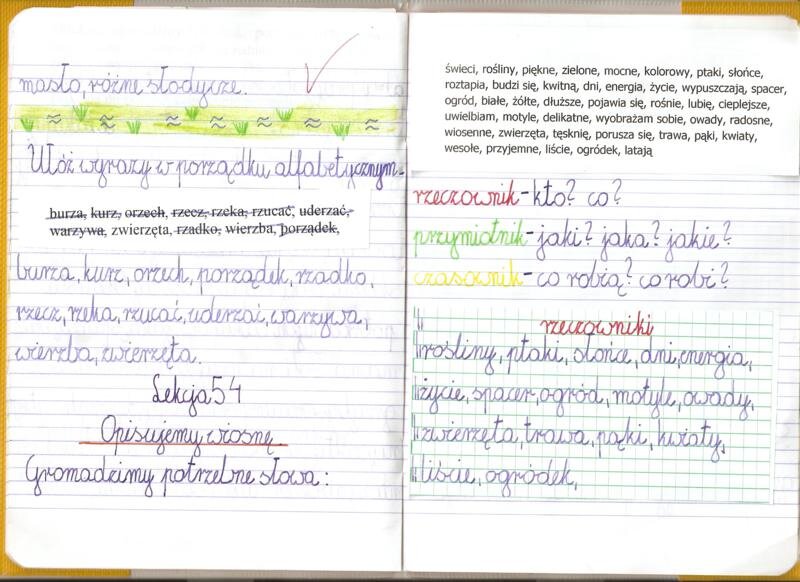 masło, różne słodycze.
Ułóż wyrazy w porządku alfabetycznym.
burza, kurz, orzech, rzecz, rzeka, rzucać, uderzać,
warzywa, zwierzęta, rzadko, wierzba, porządek,
burza, kurz, orzech, porządek, rzadko,
rzecz, rzeka, rzucać, uderzać, warzywa,
wierzba, zwierzęta.
Lekcja 54
Opisujemy wiosnę
Gromadzimy potrzebne słowa:
świeci, rośliny, piękne, zielone, mocne, kolorowy, ptaki, słońce,
roztapia, budzi się, kwitną, dni, energia, życie, wypuszczają, spacer,
ogród, białe, żółte, dłuższe, pojawia się, rośnie, lubię, cieplejsze,
uwielbiam, motyle, delikatne, wyobrażam sobie, owady, radosne,
wiosenne, zwierzęta, tęsknię, porusza się, trawa, pąki, kwiaty,
wesołe, przyjemne, liście, ogródek, latają
rzeczownik - kto? co?
przymiotnik - jaki? jaka? jakie?
czasownik - co robią? co robi?
rzeczowniki
rośliny, ptaki, słońce, dni, energia,
życie, spacer, ogród, motyle, owady,
zwierzęta, trawa, pąki, kwiaty,
liście, ogródek,